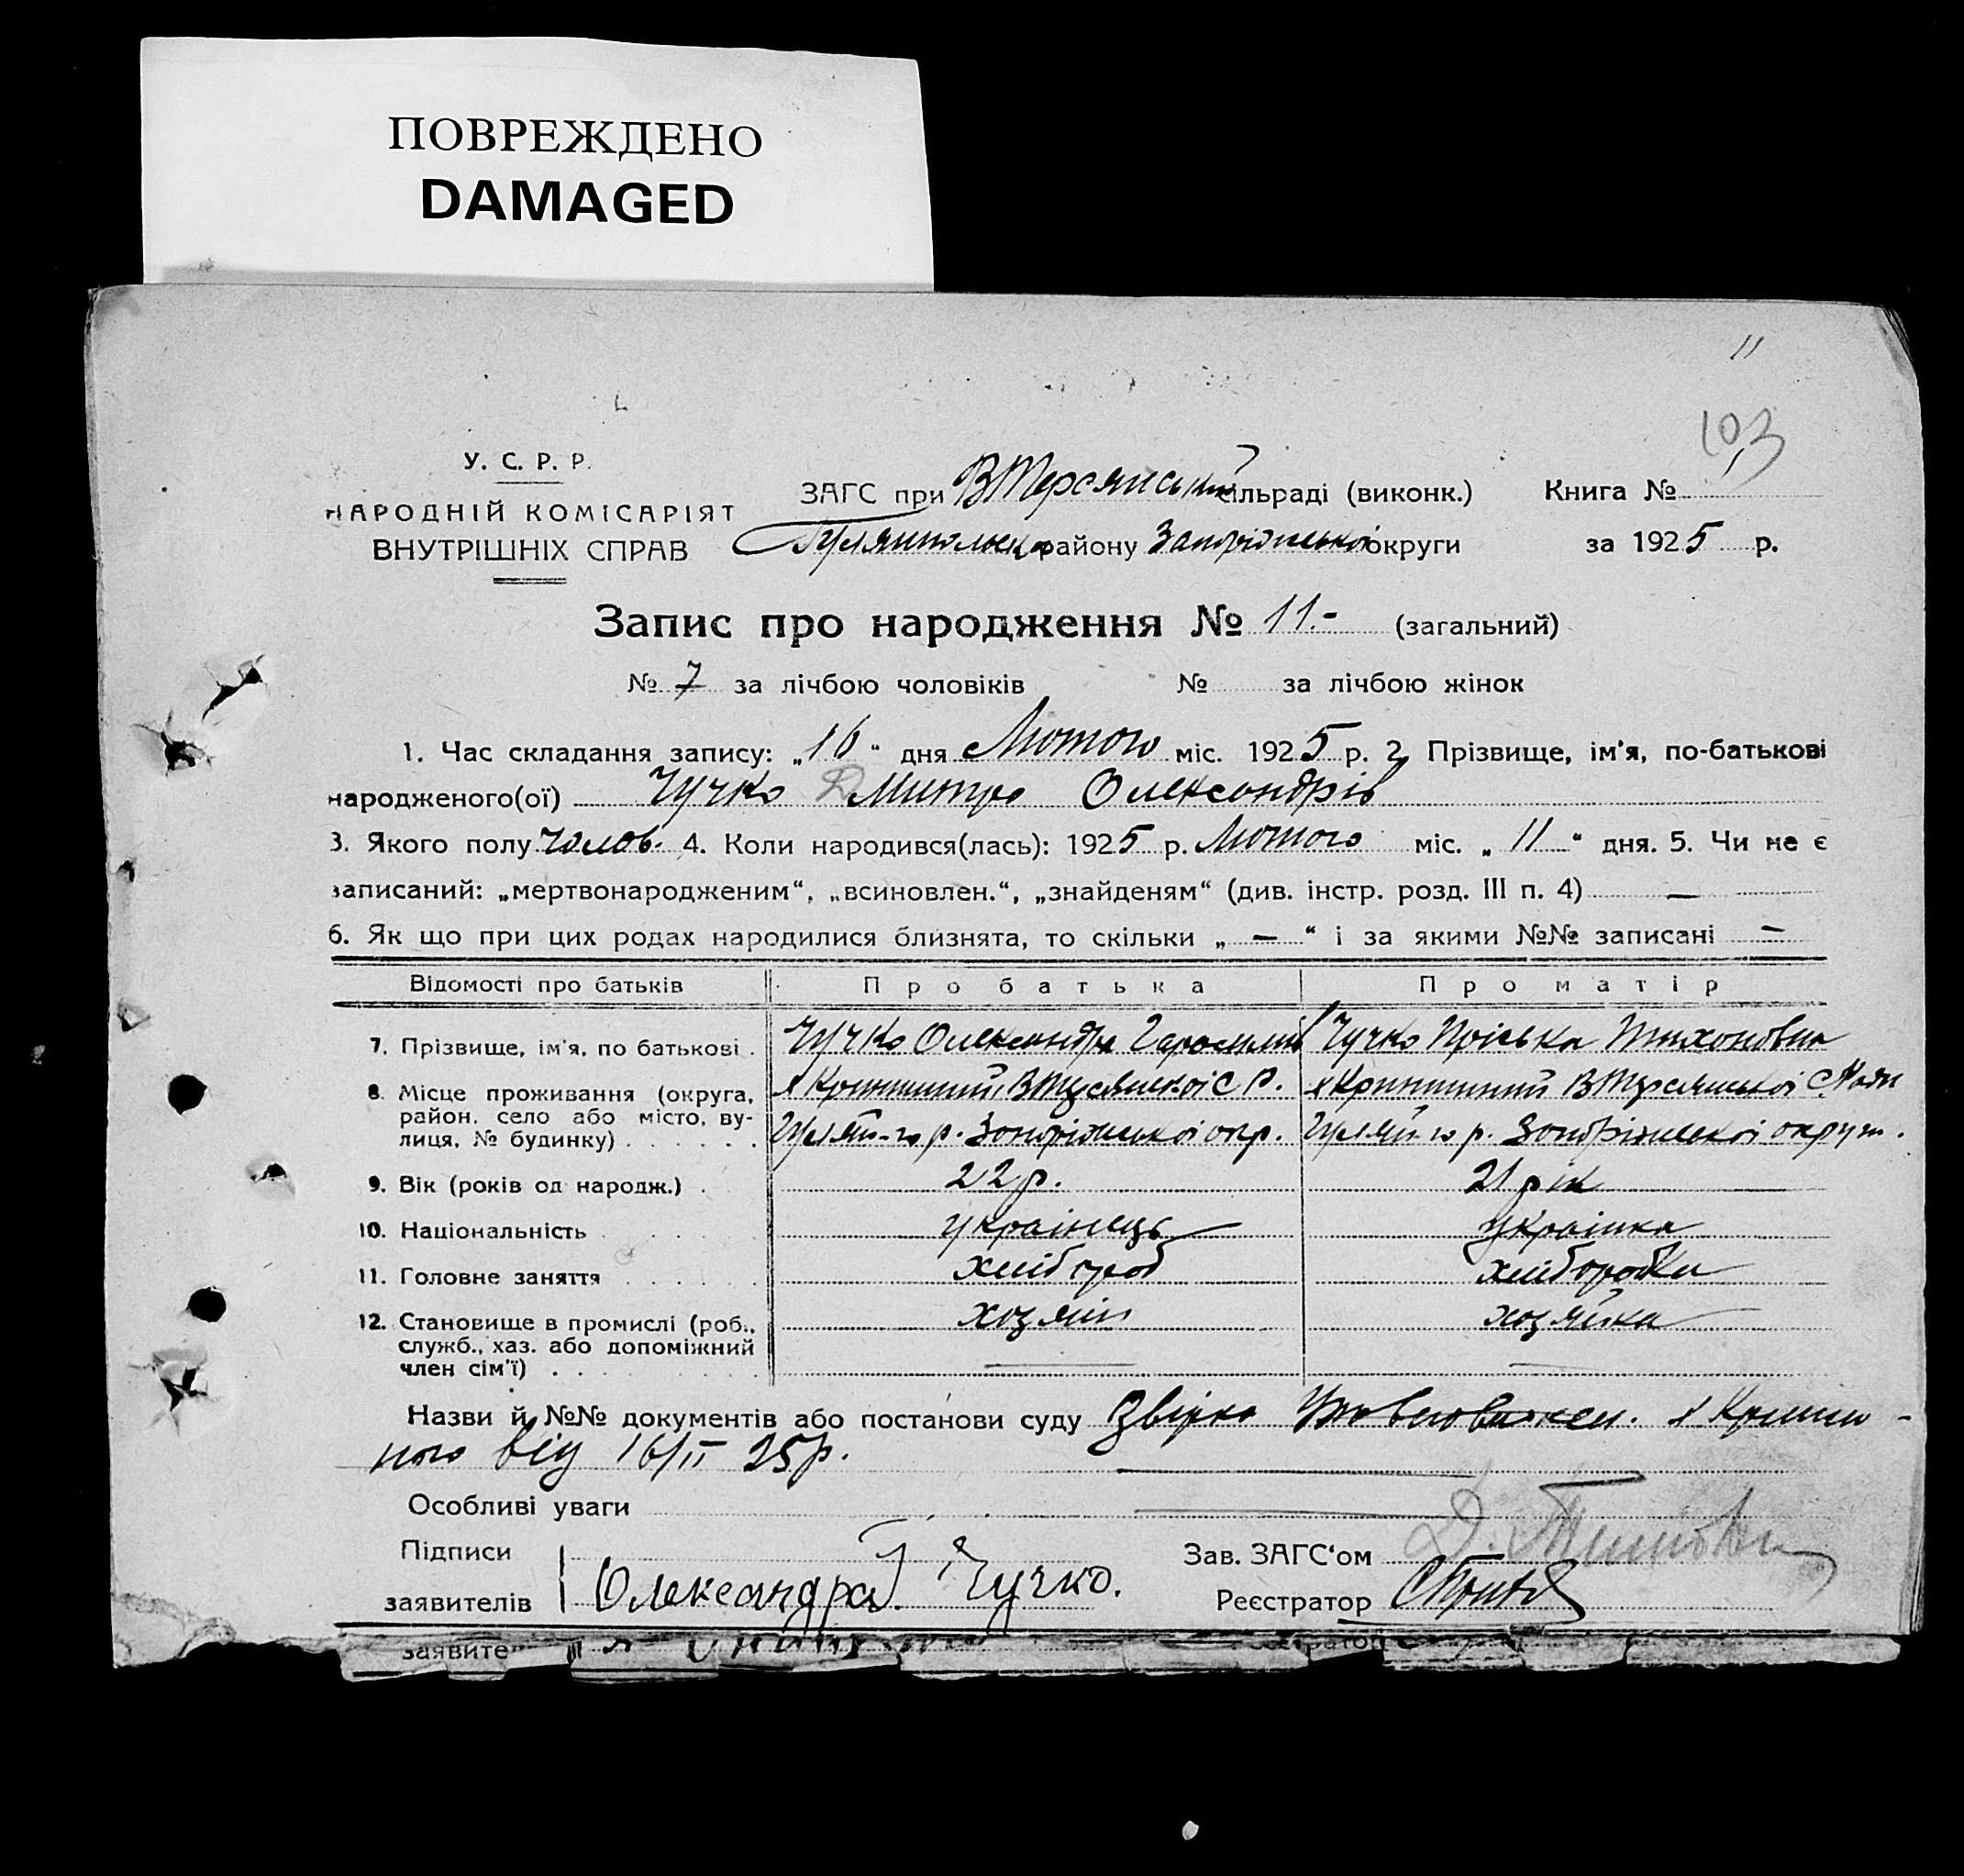 ПОВРЕЖДЕНО
DAMAGED
11
103
У. С. Р. Р.
НАРОДНІЙ КОМІСАРІЯТ
ВНУТРІШНІХ СПРАВ
ЗАГС при ВТерсянській сільраді (виконк.) Книга №
району Запорізької округи за 1925 р.
Запис про народження № 11.- (загальний)
№ 7 за лічбою чоловіків № за лічбою жінок
1. Час складання запису: „16“ дня Лютого міс. 1925 р. 2. Прізвище, ім'я, по-батькові
народженого(ої) Чучко Дмитро Олександрів
3. Якого полу чолов. 4. Коли народився(лась): 1925 р. Лютого міс. „11“ дня. 5. Чи не є
записаний: „мертвонародженим“, „всиновлен.“, „знайденям“ (див. інстр. розд. III п. 4) —
6. Як що при цих родах народилися близнята, то скільки „—“ і за якими №№ записані —
Відомості про батьків Про батька Про матір
7. Прізвище, ім'я, по батькові . Чучко Олександр Чучко Пріська Тихоновна
8. Місце проживання (округа, район, село або місто, вулиця, № будинку) х Кринишний ВТерсянської С Р. х Кринишний ВТерсянської С
Гуляй-го р. Запорізької окр. Гуляй-го р. Запорізької округи.
9. Вік (років од народж.) . 22 р. 21 рік
10. Національність українець українка
11. Головне заняття хлібороб хліборобка
12. Становище в промислі (роб., служб., хаз. або допоміжний член сім'ї) хозяїн хозяйка
Назви й №№ документів або постанови суду х
від 16/II 25р.
Особливі уваги
Підписи Зав. ЗАГС'ом
заявителів Олександра Чучко. Реєстратор
заявите